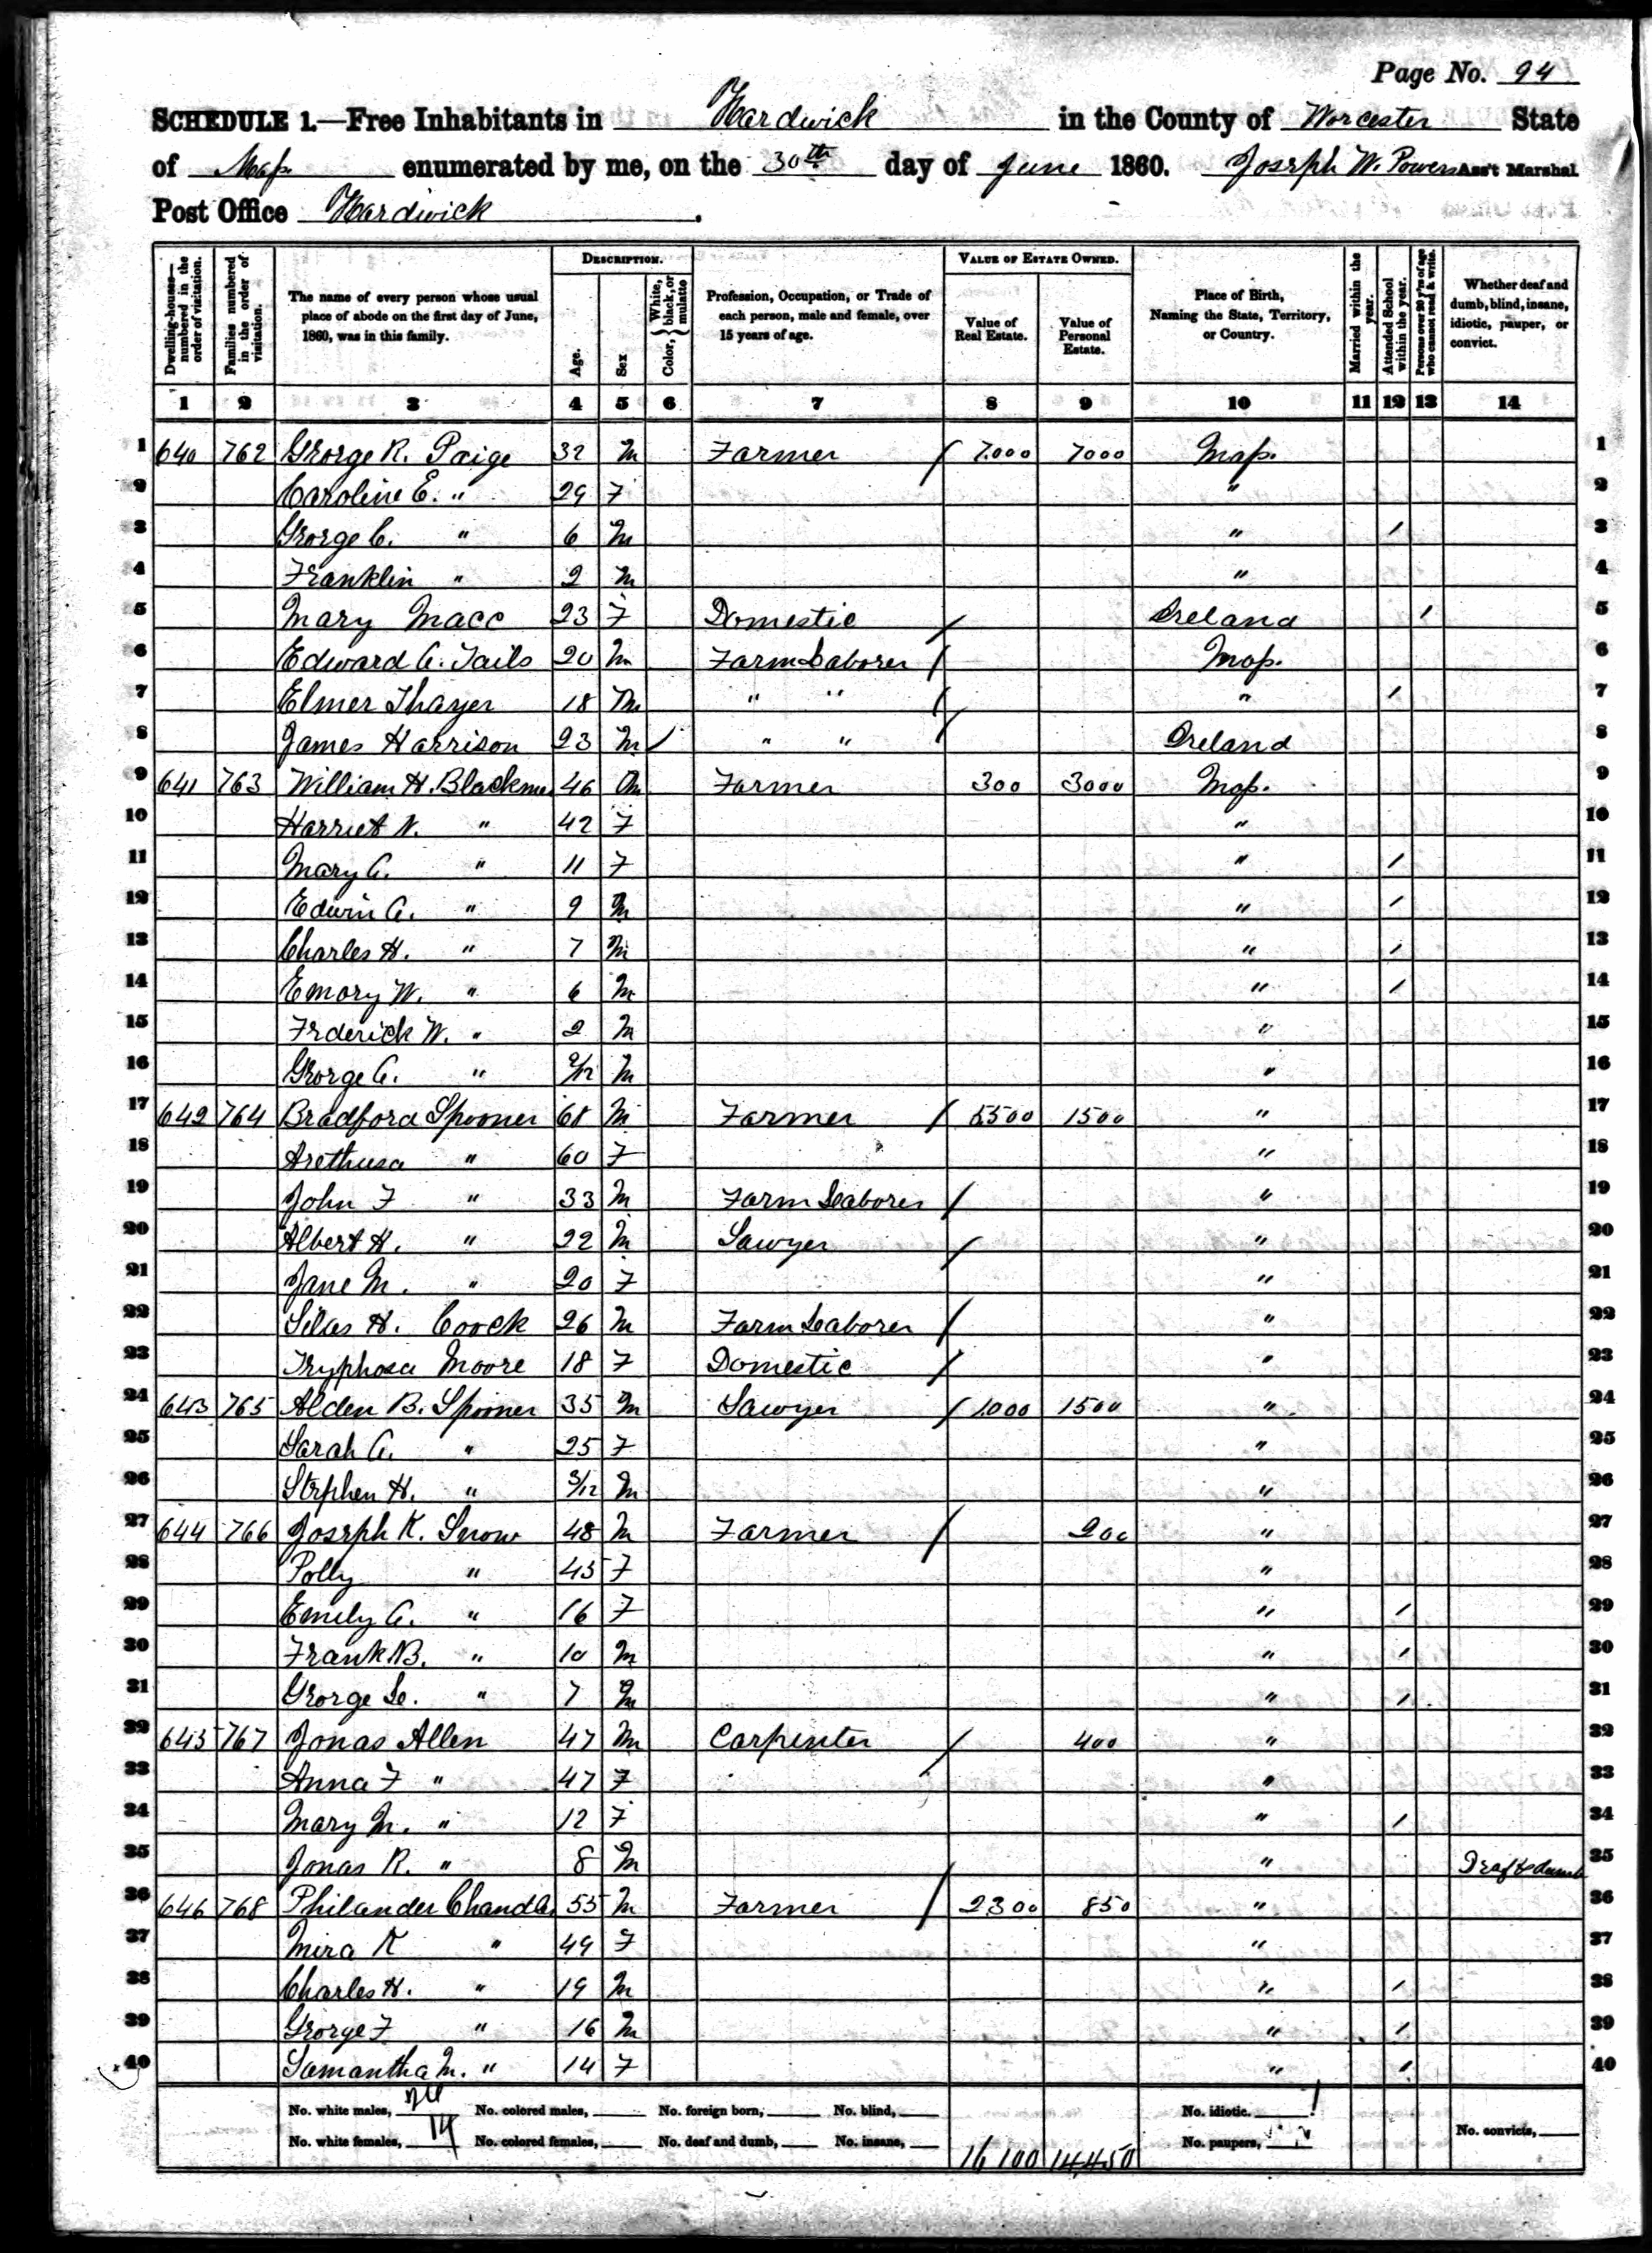 Page No. 94
SCHEDULE 1.—Free Inhabitants in Hardwick in the County of Worcester State
of Mass. enumerated by me, on the 30th day of June 1860. Joseph W. Powers Ass't Marshal
Post Office Hardwick.
Dwelling-houses—numbered in the order of visitation. Families numbered in the order of visitation. The name of every person whose usual place of abode on the first day of June, 1860, was in this family. DESCRIPTION. Age. Sex Color, { White, black, or mulatto Profession, Occupation, or Trade of each person, male and female, over 15 years of age. VALUE OF ESTATE OWNED. Value of Real Estate. Value of Personal Estate. Place of Birth, Naming the State, Territory, or Country. Married within the year. Attended School within the year. Persons over 20 y'rs of age who cannot read & write. Whether deaf and dumb, blind, insane, idiotic, pauper, or convict.
1 2 3 4 5 6 7 8 9 10 11 12 13 14
1 640 762 George R. Paige 32 M Farmer / 7.000 7000 Mass. 1
2 Caroline E. " 29 F " 2
3 George C. " 6 M " / 3
4 Franklin " 2 M " 4
5 Mary Mace 23 F Domestic / Ireland / 5
6 Edward A. 20 M Farm Laborer / Mass. 6
7 Elmer Thayer 18 M " " / " / 7
8 James Harrison 23 M / " " / Ireland 8
9 641 763 William H. Blackmer 46 M Farmer 300 3000 Mass. 9
10 Harriet N. " 42 F " 10
11 Mary A. " 11 F " / 11
12 Edwin A. " 9 M " / 12
13 Charles H. " 7 M " / 13
14 Emory W. " 6 M " / 14
15 Frderick W. " 2 M " 15
16 George A. " M " 16
17 642 764 Bradford Spooner 68 M Farmer / 5500 1500 " 17
18 Arethusa " 60 F " 18
19 John F " 33 M Farm Laborer / " 19
20 Albert H. " 22 M Sawyer / " 20
21 Jane M. " 20 F " 21
22 Silas H. Coock 26 M Farm Laborer / " 22
23 Tryphosa Moore 18 F Domestic / " 23
24 643 765 Alden B. Spooner 35 M Sawyer / 1.000 1500 " 24
25 Sarah A. " 25 F " 25
26 Stephen H. " 3/12 M " 26
27 644 766 Joseph K. Snow 48 M Farmer / 200 " 27
28 Polly " 45 F " 28
29 Emily A. " 16 F " / 29
30 Frank B. " 10 M " / 30
31 George L. " 7 M " / 31
32 645 767 Jonas Allen 47 M Carpenter / 400 " 32
33 Anna F " 47 F " 33
34 Mary M. " 12 F " / 34
35 Jonas R. " 8 M " Deaf & dumb 35
36 646 768 Philander Chandler 55 M Farmer / 2300 850 " 36
37 Mira K " 49 F " 37
38 Charles H. " 19 M " / 38
39 George F " 16 M " / 39
40 Samantha M. " 14 F " / 40
No. white males, No. colored males, No. foreign born, No. blind, No. idiotic.
No. white females, 14 No. colored females, No. deaf and dumb, No. insane, 16 100 14,450 No. paupers, No. convicts,